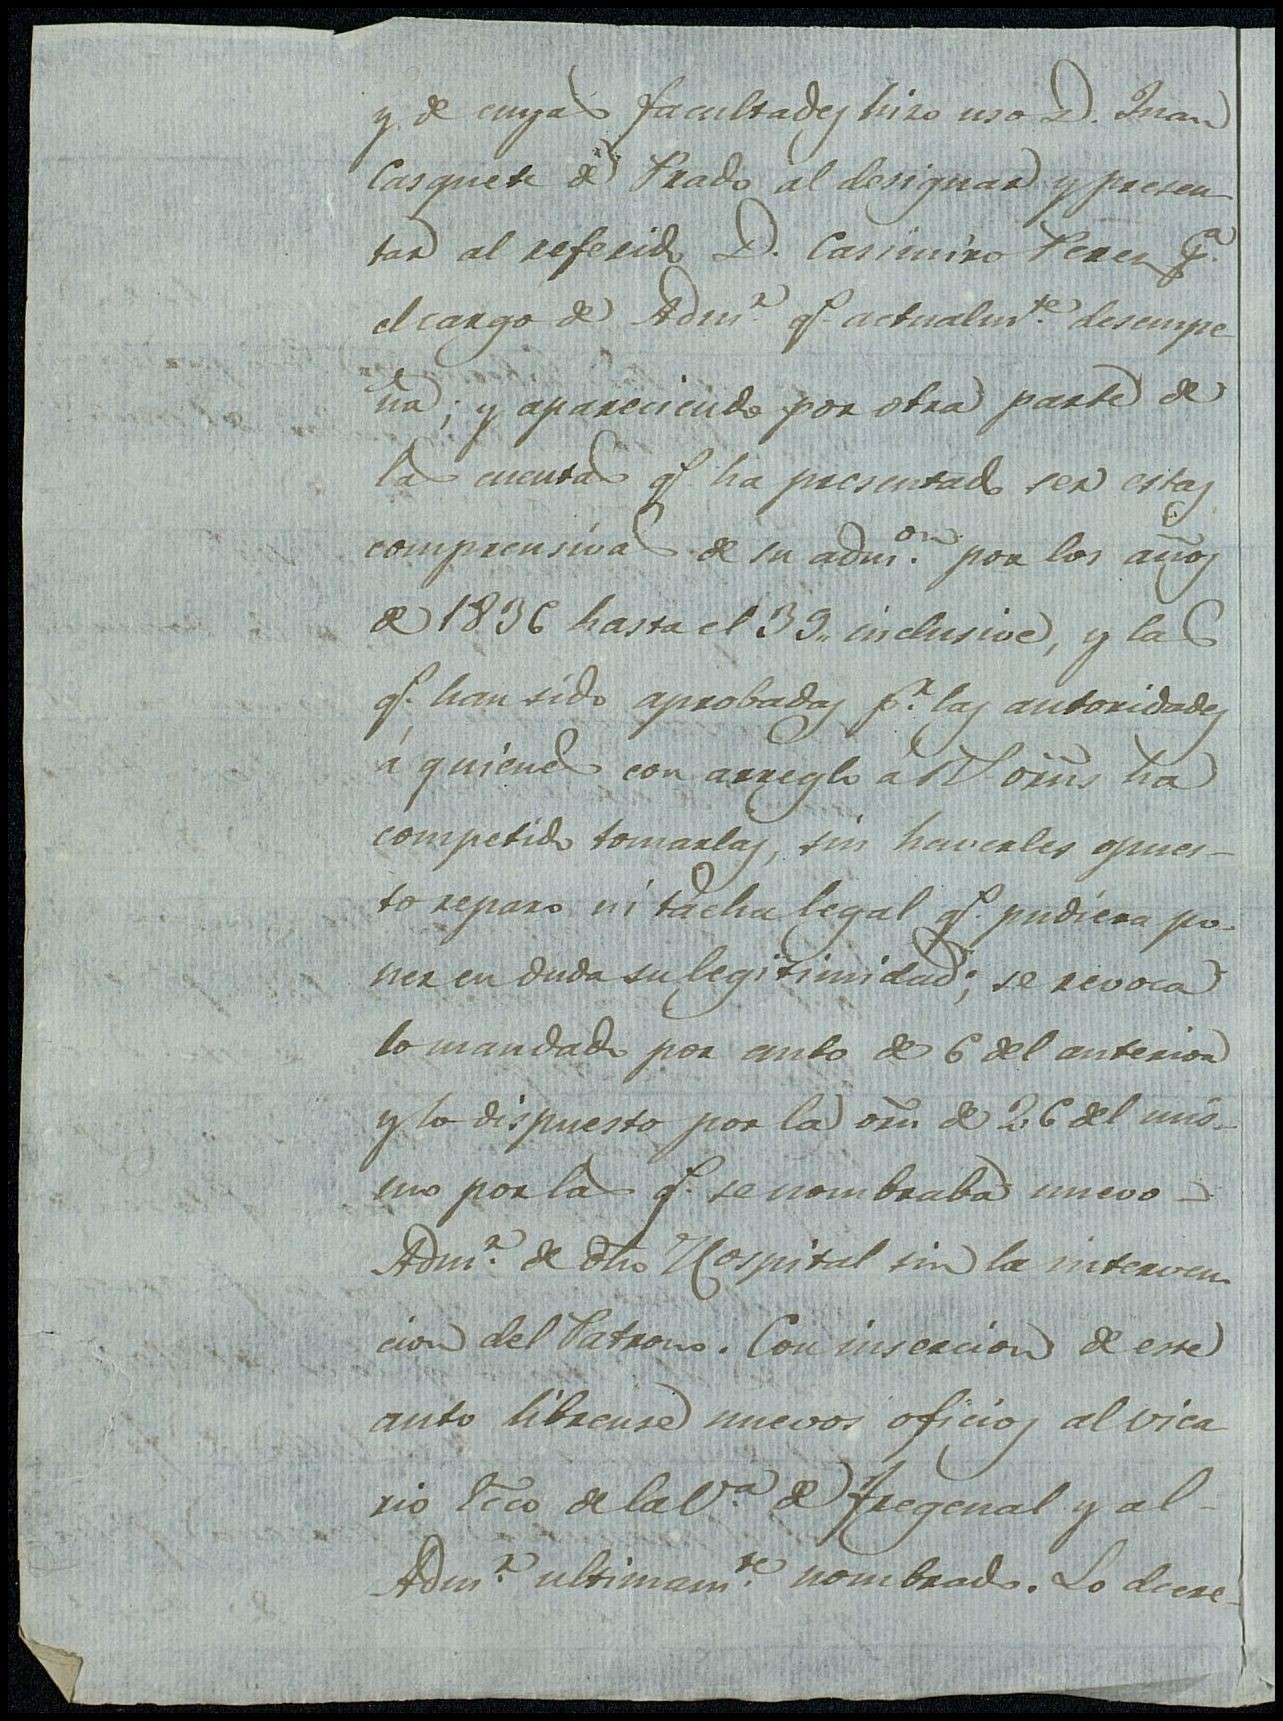 y de cuyas facultades hizo uso D. Juan
Casquete de Prado al designar y presen-
tar al referido D. Casimiro Perez p.ª
el cargo de Adm.r q.e actualm.te desempe-
ña; y apareciendo por otra parte de
las cuentas q.e ha presentado ser estas
comprensivas de su adm.on por los años
de 1836 hasta el 39,, inclusive, y las
q.e han sido aprobadas p.r las autoridades
á quienes con arreglo á Rs orñs ha
competido tomarlas, sin haverles opues-
to reparo ni tacha legal q.e pudiera po-
ner en duda su legitimidad; se revoca
lo mandado por auto de 6 del anterior
y lo dispuesto por la orñ de 26 del mis-
mo por la q.e se nombraba nuevo
Adm.r de dho Hospital sin la interven-
cion del Patrono. Con insercion de este
auto librense nuevos oficios al vica
rio Ecco de la V.ª de Fregenal y al
Adm.r ultimam.te nombrado. Lo decre-